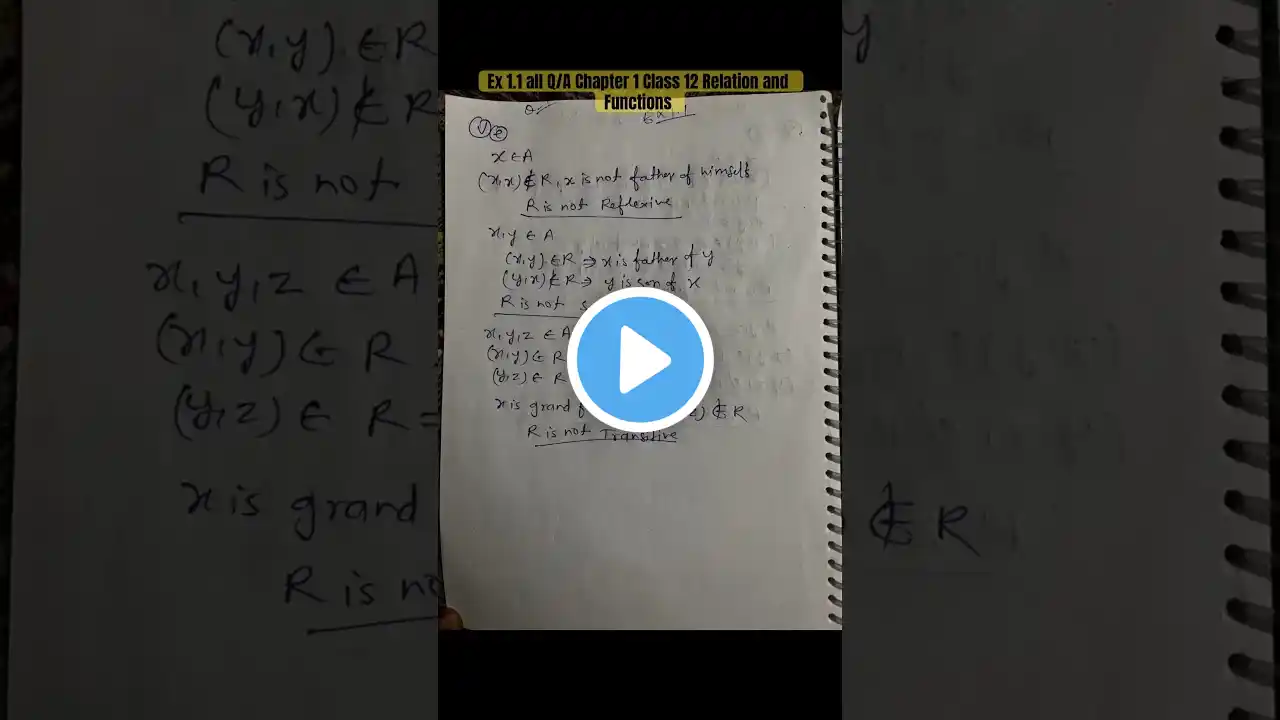 Ex 1.1 all Q/A Chapter 1 Class 12 Relation and
Functions
Ex 1.1
(V) (e)
x ∈ A
(x,x) ∉ R, x is not father of himself
R is not Reflexive
x,y ∈ A
(x,y) ∈ R ⇒ x is father of y
(y,x) ∉ R ⇒ y is son of x
R is not
x,y,z ∈ A
(x,y) ∈ R
(y,z) ∈ R
x is grand
∉ R
R is not Transitive
(x,y) ∈ R
(y,x) ∉ R
R is not
x,y,z ∈ A
(x,y) ∈ R
(y,z) ∈ R =
x is grand
R is
y
∉ R